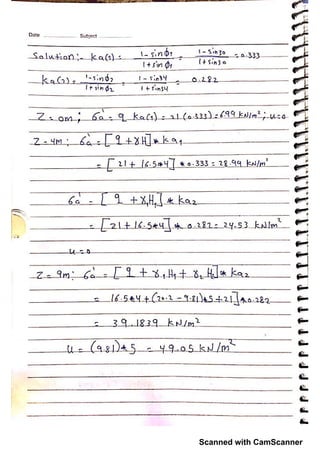 Date Subject
Solution:- ka(1) = 1 - sinϕ1 / 1 + sin ϕ1 = 1 - sin30 / 1 + sin30 = 0.333
ka(2) = 1 - sinϕ2 / 1 + sin ϕ2 = 1 - sin34 / 1 + sin34 = 0.282
Z = 0m ; σa' = q ka(1) = 21 (0.333) = 6.99 kN/m² ; u=0
Z = 4M : σa' = [q + γH] * ka1
= [21 + 16.5*4] * 0.333 = 28.99 kN/m²
σa' = [q + γ1H1] * ka2
= [21 + 16.5*4] * 0.282 = 24.53 kN/m²
u = 0
Z = 9m: σa' = [q + γ1 H1 + γ2 H2] * ka2
= 16.5*4 + (20.2 - 9.81)*5 + 21] * 0.282
= 39.1839 kN/m²
u = (9.81)*5 = 49.05 kN/m²
Scanned with CamScanner